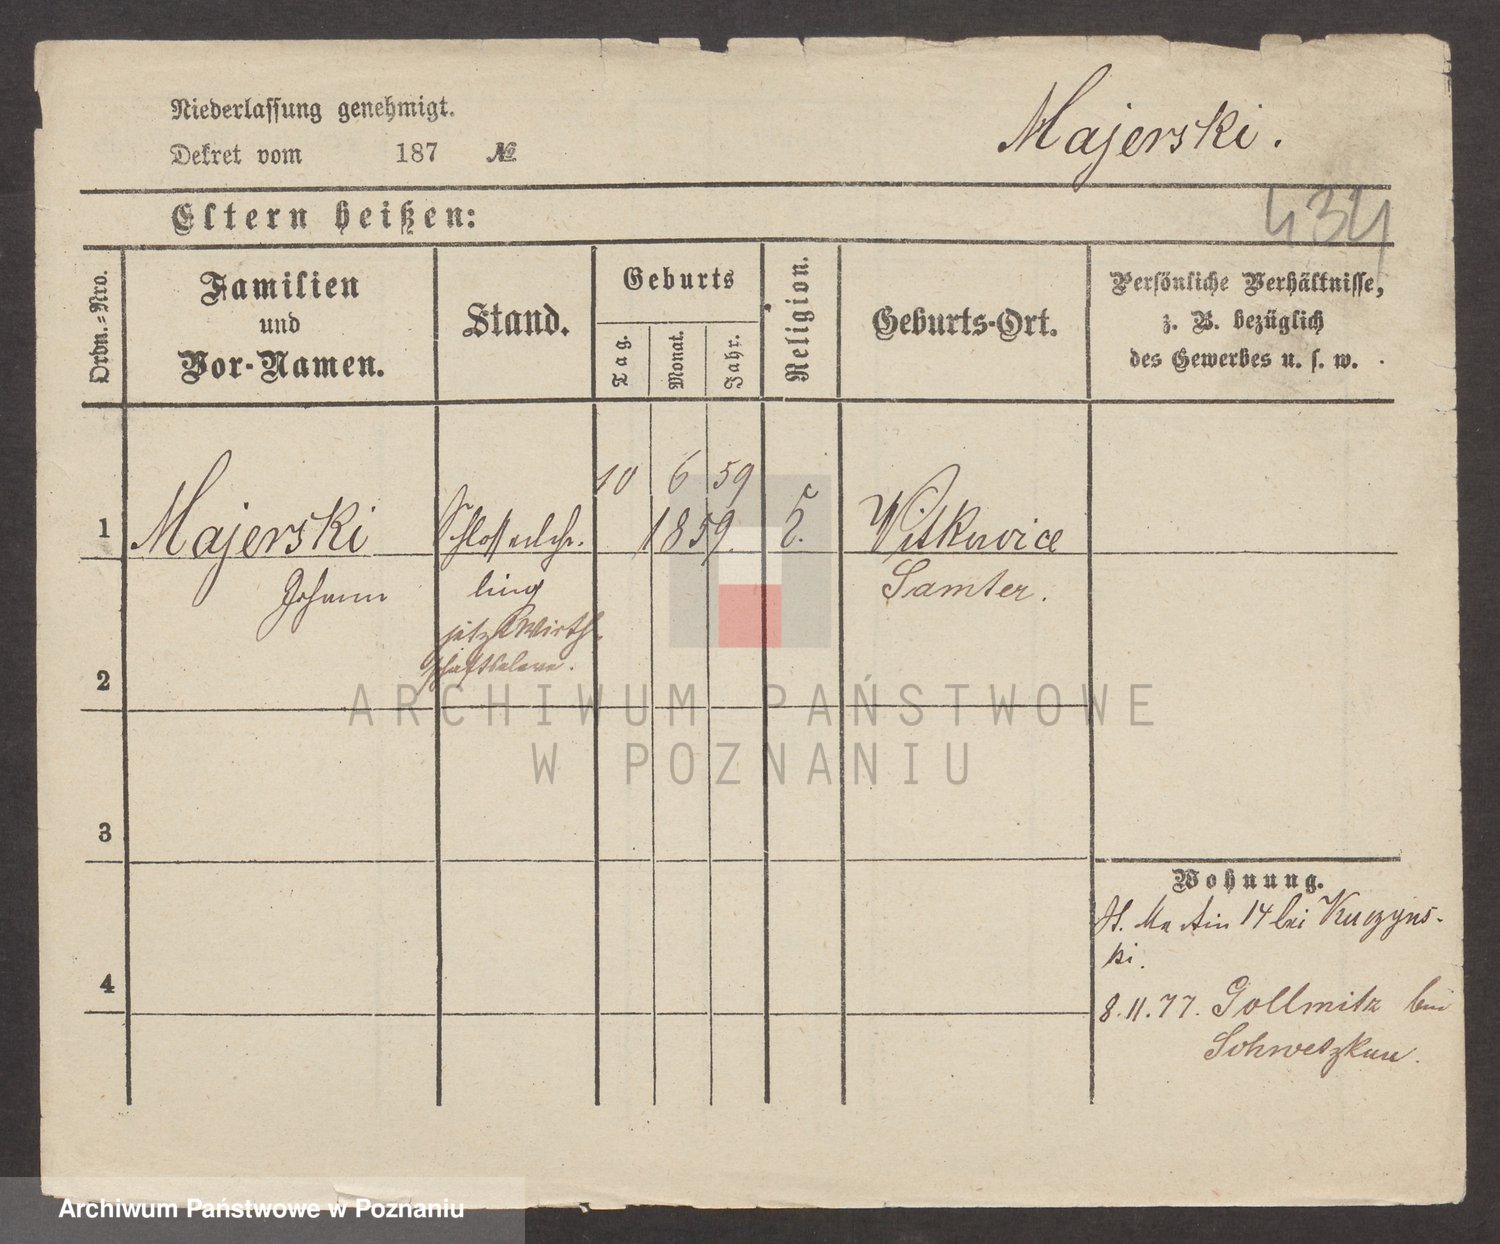 Niederlassung genehmigt.
Dekret vom 187 №
Majerski.
434
Eltern heißen:
Ordn.-Nro.
Familien
und
Vor-Namen.
Stand.
Geburts
Tag.
Monat.
Jahr.
Religion.
Geburts-Ort.
Persönliche Verhältnisse,
z. B. bezüglich
des Gewerbes u. s. w.
10 6 59
1 Majerski Schlosserlehr- 1859. Witkowice
Johann ling Samter.
jetzt Wirth-
schaftseleve.
2
3
4
Wohnung.
St. Martin 14 bei Kuczyns-
ki.
8.11.77. Gollmitz bei
Schwetzkau.
ARCHIWUM PAŃSTWOWE
W POZNANIU
Archiwum Państwowe w Poznaniu